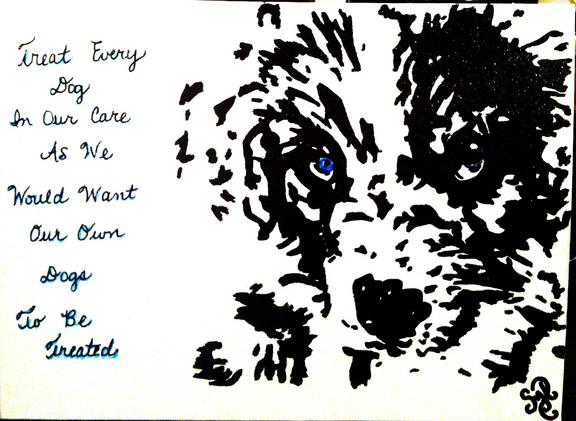 Treat Every
Dog
In Our Care
As We
Would Want
Our Own
Dogs
To Be
Treated